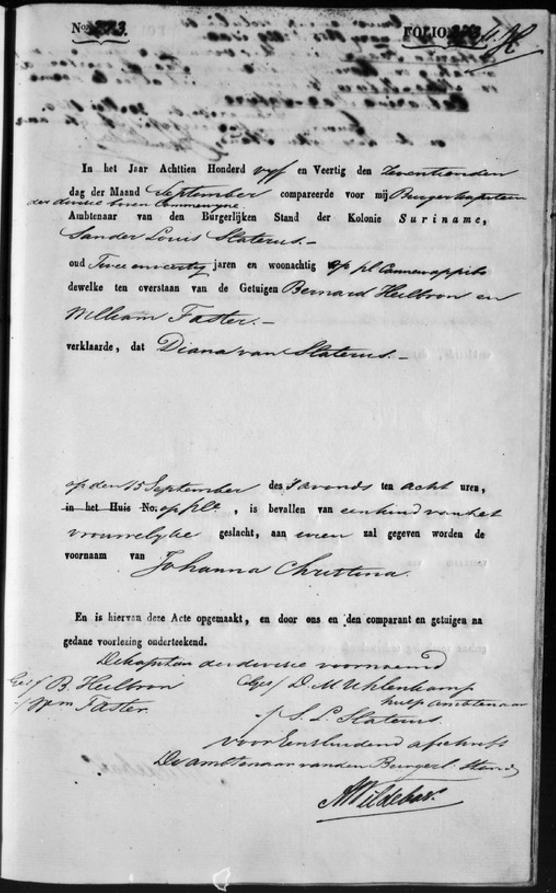 No. 273.
FOLIO 273
In het Jaar Achttien Honderd vyf en Veertig den Zeventienden
dag der Maand September compareerde voor mij Burgerkapitein
der divisie boven Commewyne.
Ambtenaar van den Burgerlijken Stand der Kolonie Suriname,
Sander Louis Slaterus. –
oud Twee en veertig jaren en woonachtig op pl Cannewappibo
dewelke ten overstaan van de Getuigen Bernard Heilbron en
William Faster. –
verklaarde, dat Diana van Slaterus. –
op den 15 September des S'avonds ten acht uren,
in het Huis No. op pl:, is bevallen van een kind van het
vrouwelyke geslacht, aan wien zal gegeven worden de
voornaam van Johanna Christina.
En is hiervan deze Acte opgemaakt, en door ons en den comparant en getuigen na
gedane voorlezing onderteekend.
De kapitein der divisie voornoemd
Get/ B. Heilbron Get/ D. M. Uhlenkamp
hulp ambtenaar
/ Wm Faster. / S. L. Slaterus.
Voor Eensluidend afschrift
De ambtenaar van den Burgerl: Stand